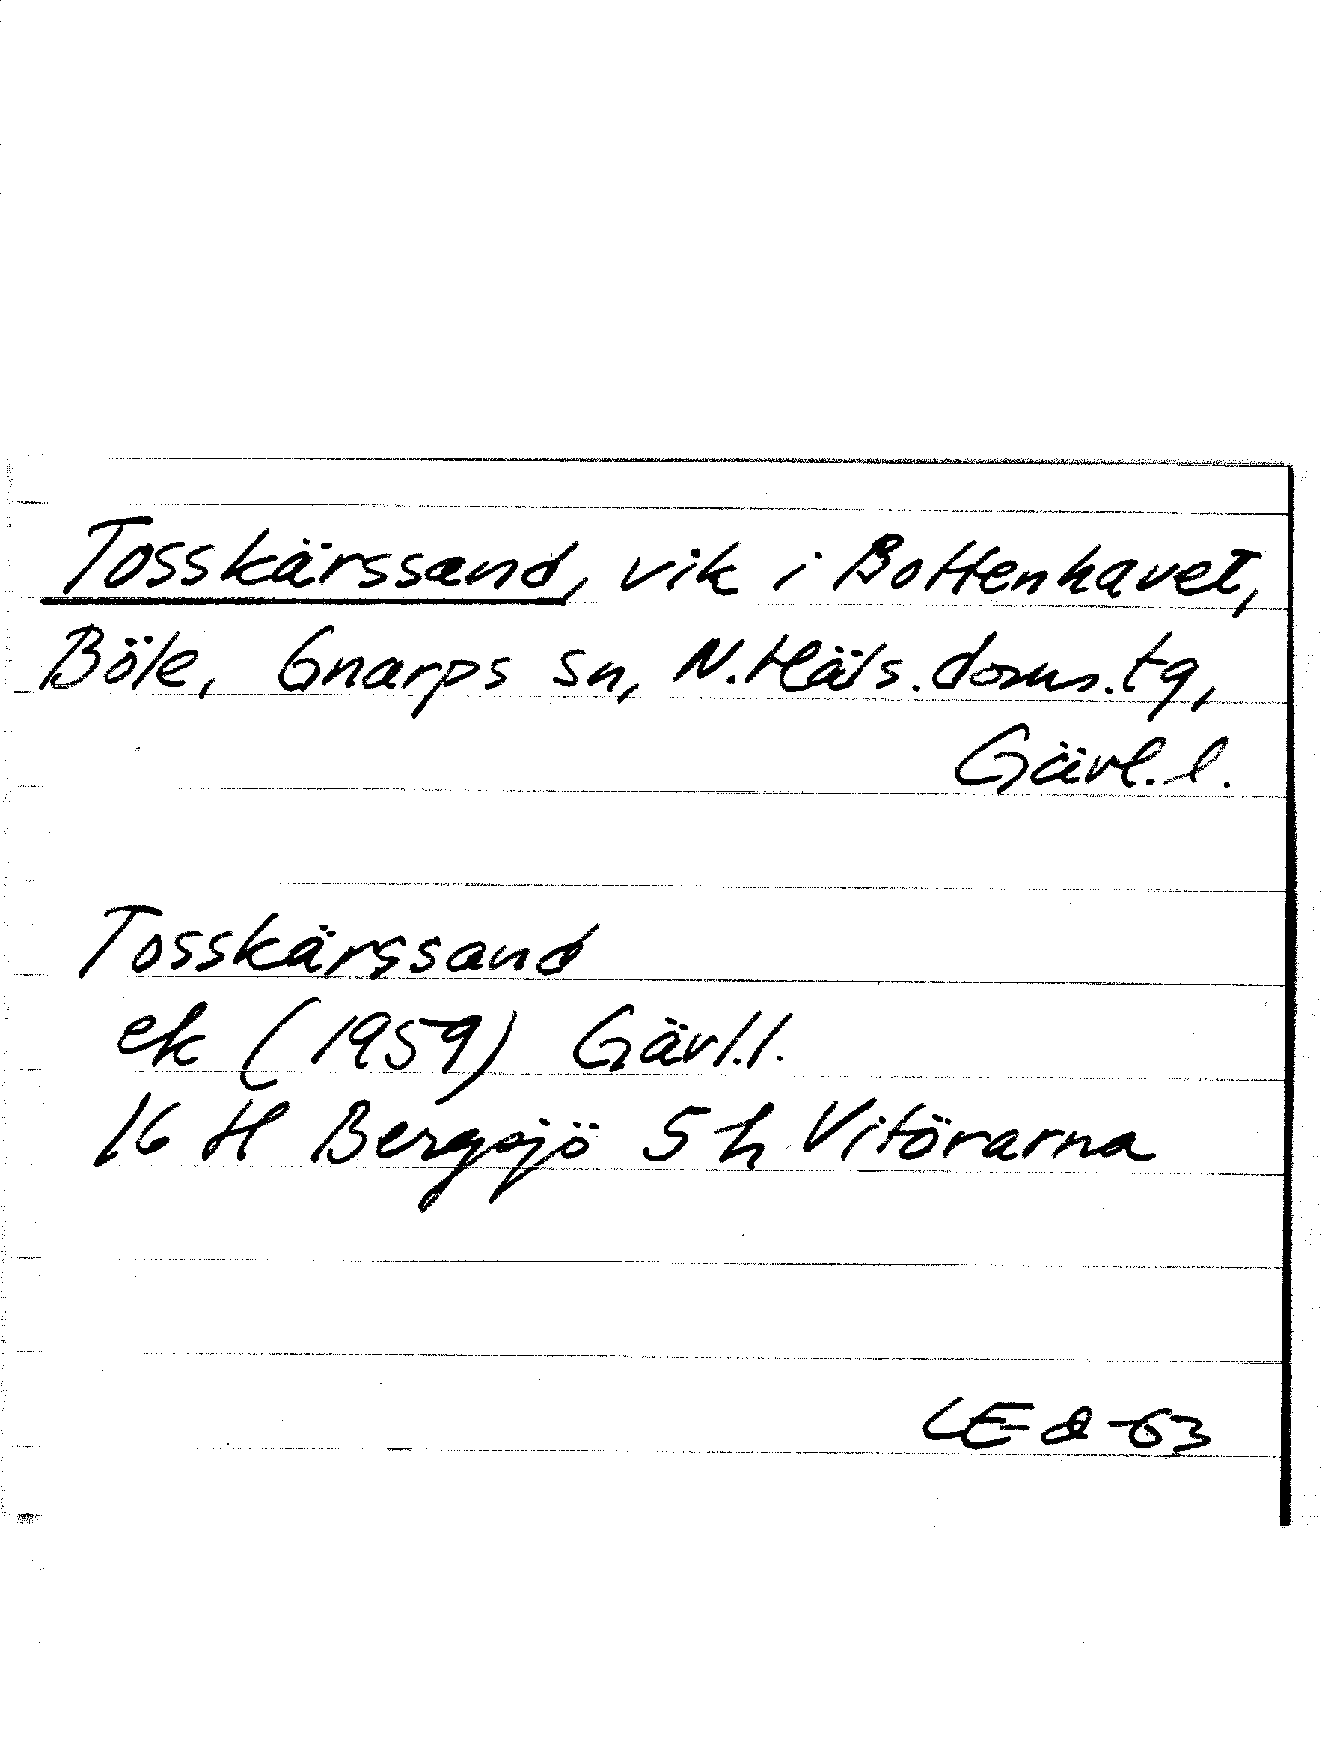 Tosskärssand, vik i Bottenhavet,
Böle, Gnarps sn, N. Häls. doms. tg,
Gävl. l.
Tosskärssand
ek (1959) Gävl. l.
16 H Bergsjö 5 h Vitörarna